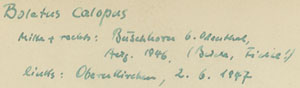 Boletus calopus
Mitte + rechts: Büschhorn b. Odenthal,
Aug. 1946, (Buche, Fichte!)
links: Obernkirchen, 2. 6. 1947